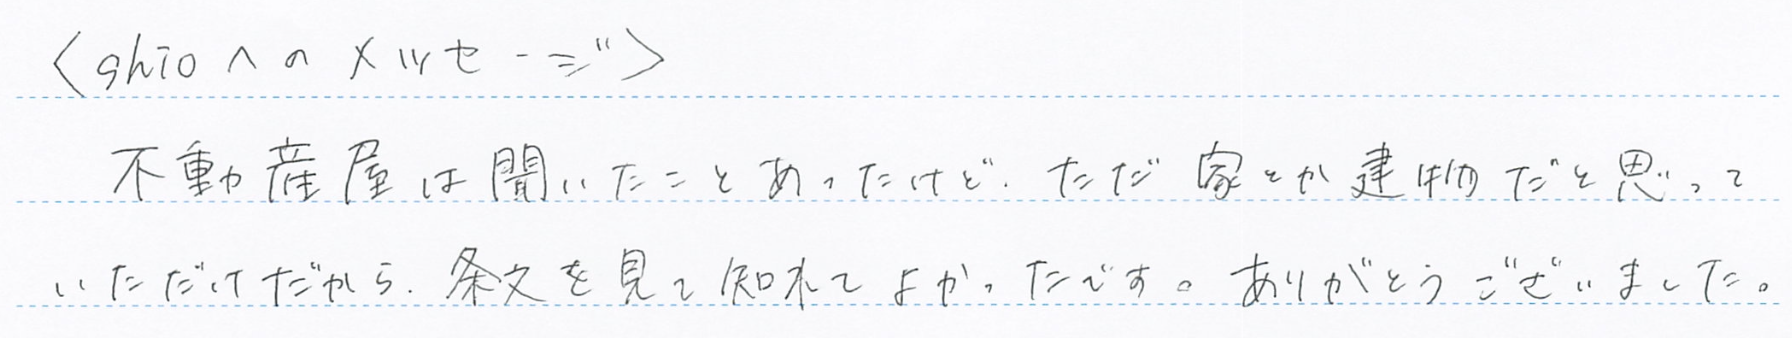 〈ghioへのメッセージ〉
不動産屋は聞いたことあったけど、ただ家とか建物だと思って
いただけだから、条文を見て知れてよかったです。ありがとうございました。